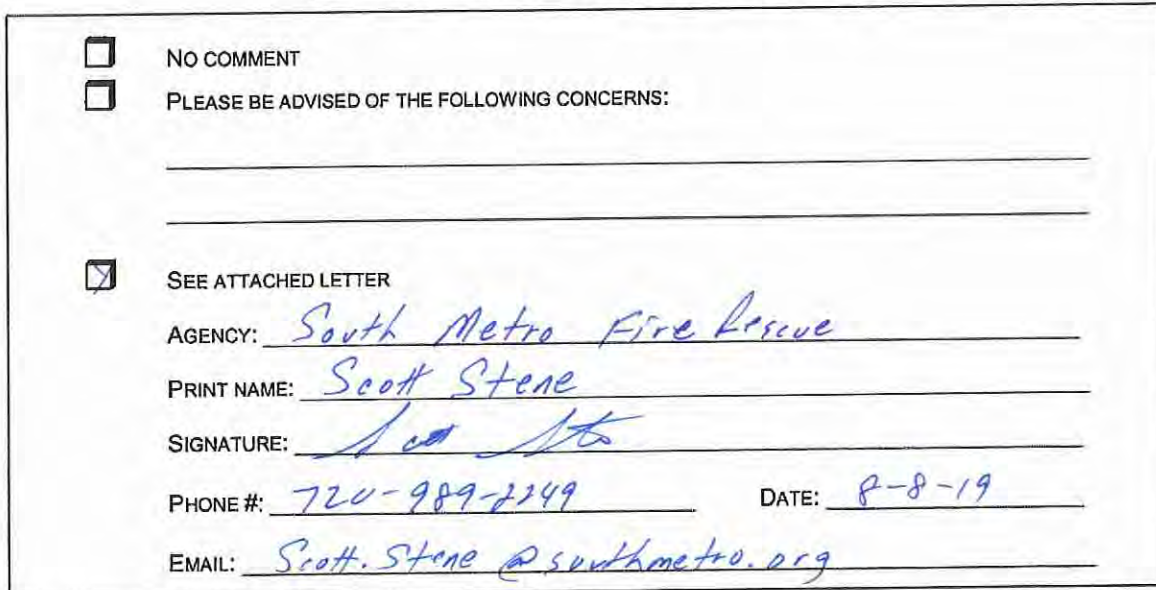 NO COMMENT
PLEASE BE ADVISED OF THE FOLLOWING CONCERNS:
SEE ATTACHED LETTER
AGENCY: South Metro Fire Rescue
PRINT NAME: Scott Stene
SIGNATURE: Scott Ste
PHONE #: 720-989-2249 DATE: 8-8-19
EMAIL: Scott.Stene@southmetro.org